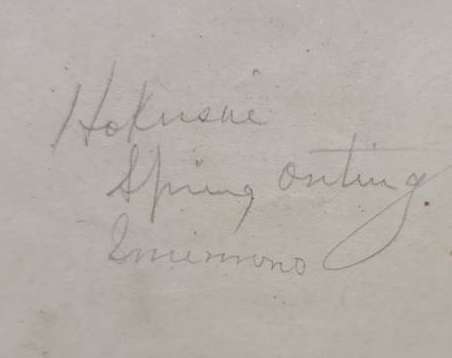 Hokusai
Spring Outing
Surimono